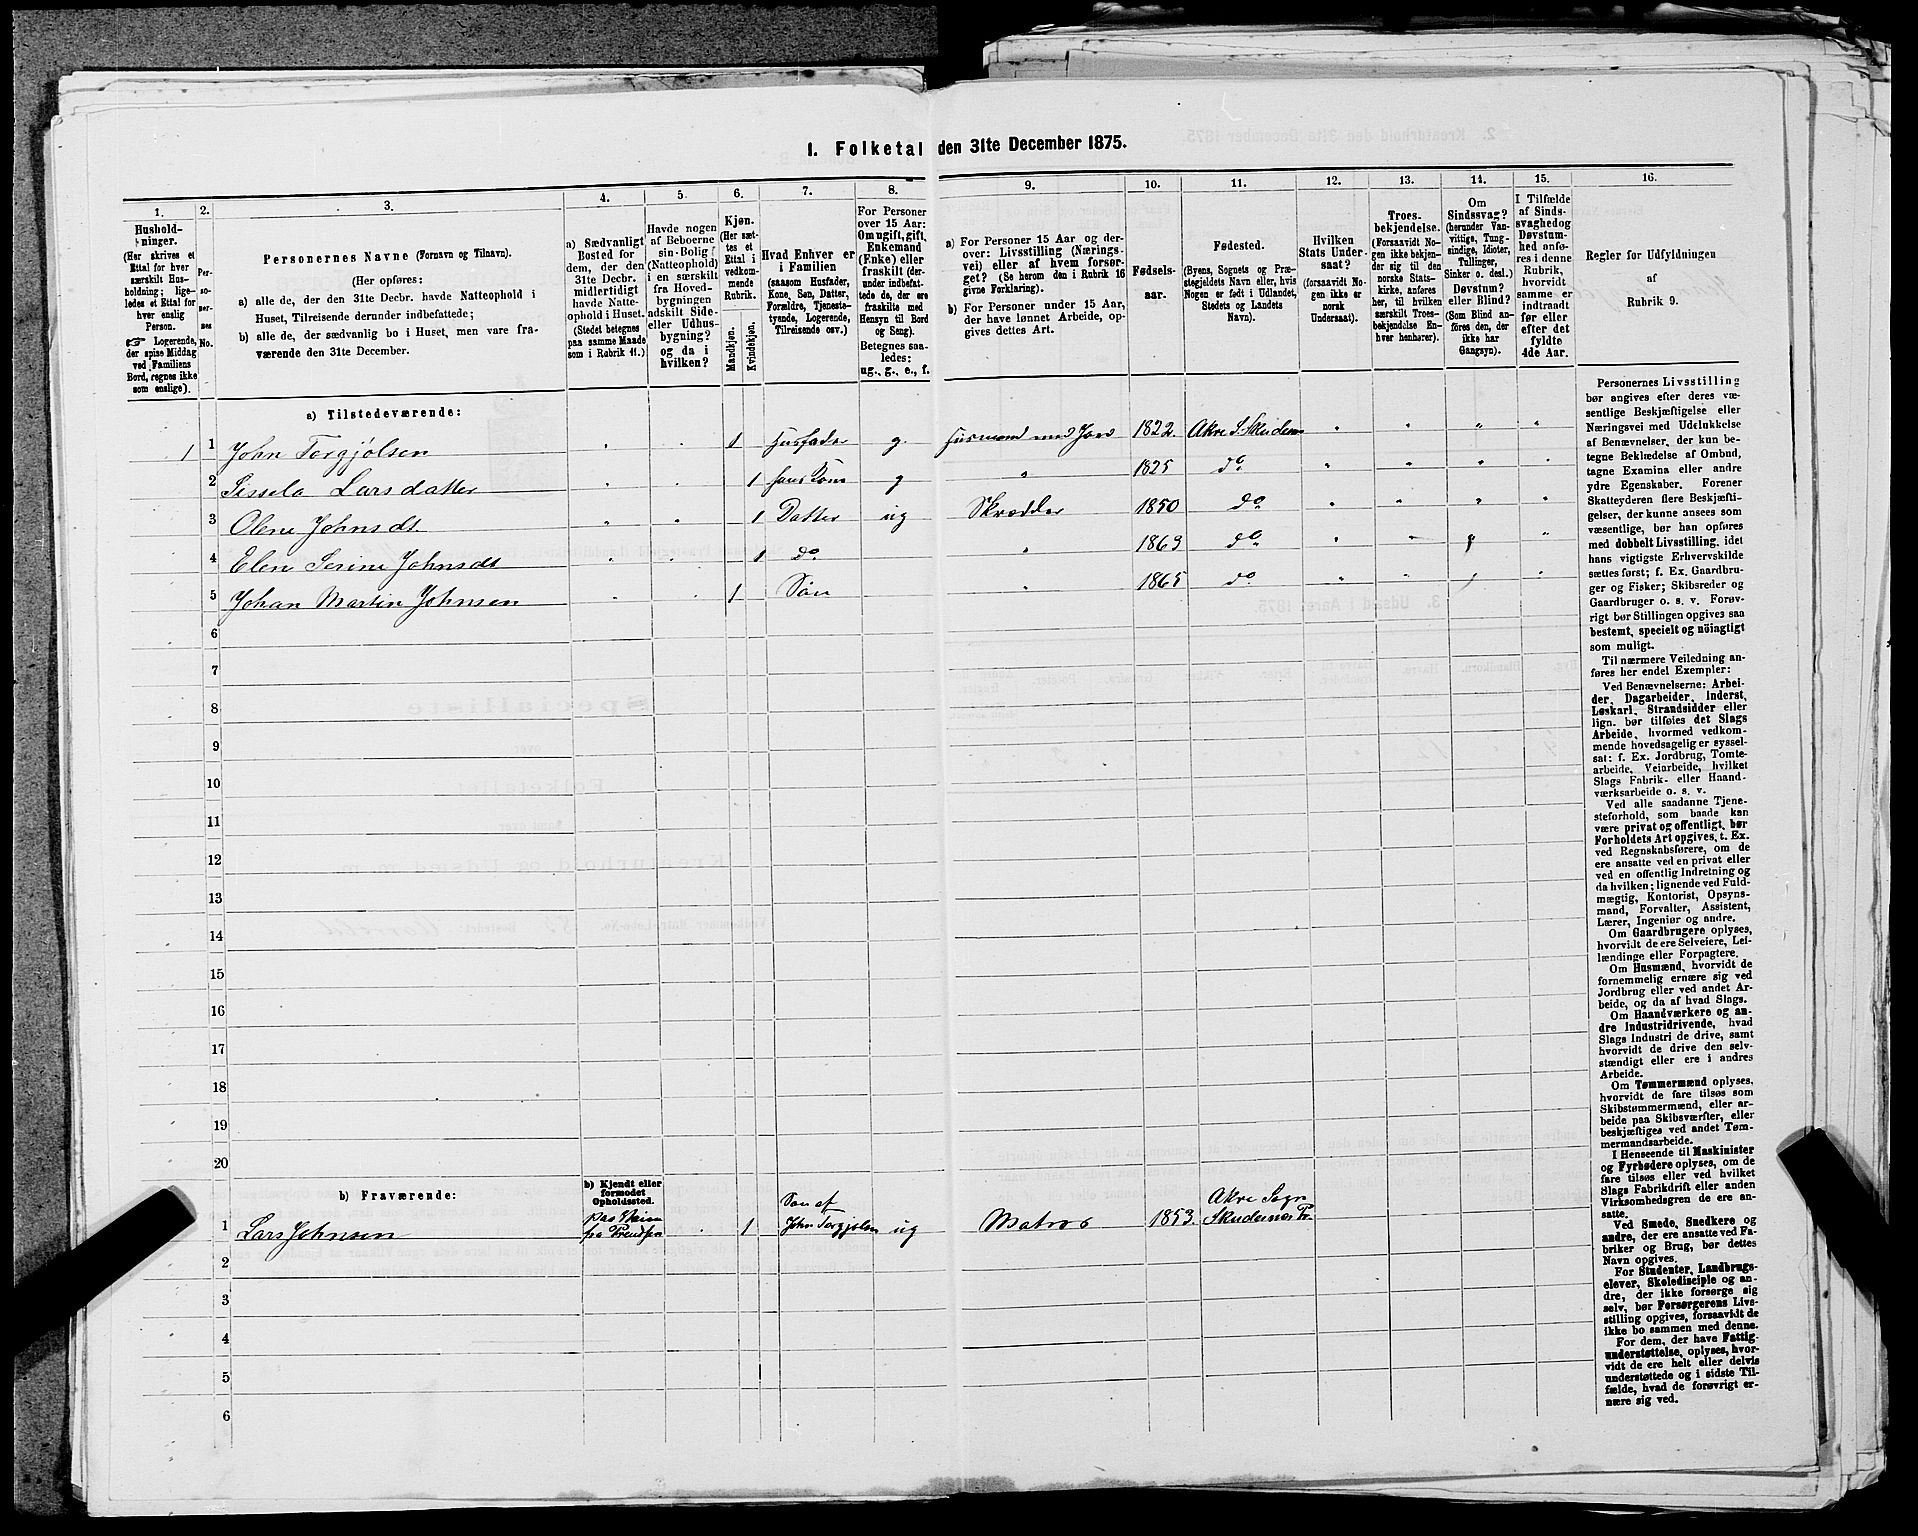 1. Folketal den 31te December 1875.
1. 2. 3. 4. 5. 6. 7. 8. 9. 10. 11. 12. 13. 14. 15. 16.
Hushold-
ninger.
(Her skrives et
Ettal for hver
særskilt Hus-
holdning; lige-
ledes et Ettal for
hver enslig
Person.
☞ Logerende,
der spise Middag
ved Familiens
Bord, regnes ikke
som enslige).
Per-
so-
ner-
nes
No.
Personernes Navne (Fornavn og Tilnavn).
(Her opføres:
a) alle de, der den 31te Decbr. havde Natteophold i
Huset, Tilreisende derunder indbefattede;
b) alle de, der sædvanlig bo i Huset, men vare fra-
værende den 31te December.
a) Sædvanligt
Bosted for
dem, der den
31te Decbr.
midlertidigt
havde Natte-
ophold i Huset.
(Stedet betegnes
paa samme Maade
som i Rubrik 11.)
Havde nogen
af Beboerne
sin Bolig
(Natteophold)
i en særskilt
fra Hoved-
bygningen
adskilt Side-
eller Udhus-
bygning?
og da i
hvilken?
Kjøn.
(Her sæt-
tes et
Ettal i
vedkom-
mende
Rubrik.
Mandkjøn.
Kvindekjøn.
Hvad Enhver er
i Familien
(saasom Husfader,
Kone, Søn, Datter,
Forældre, Tjeneste-
tyende, Logerende,
Tilreisende osv.)
For Personer
over 15 Aar:
Om ugift, gift,
Enkemand
(Enke) eller
fraskilt (der-
under indbefat-
tede de, der ere
fraskilte med
Hensyn til Bord
og Seng).
Betegnes saa-
ledes:
ug., g., e., f.
a) For Personer 15 Aar og der-
over: Livsstilling (Nærings-
vei) eller af hvem forsør-
get? (Se herom den i Rubrik 16
givne Forklaring).
b) For Personer under 15 Aar,
der have lønnet Arbeide, op-
gives dettes Art.
Fødsels-
aar.
Fødested.
(Byens, Sognets og Præ-
stegjeldets Navn eller, hvis
Nogen er født i Udlandet,
Stedets og Landets
Navn).
Hvilken
Stats Under-
saat?
(forsaavidt No-
gen ikke er
norsk
Undersaat).
Troes-
bekjendelse.
(Forsaavidt No-
gen ikke bekjen-
der sig til den
norske Stats-
kirke, anføres
her, til hvilken
særskilt Troes-
bekjendelse En-
hver henhører).
Om
Sindssvag?
(herunder Van-
vittige, Tung-
sindige, Idioter,
Tullinger,
Sinker o. desl.)
Døvstum?
eller Blind?
(Som Blind an-
føres den, der
ikke har
Gangsyn).
I Tilfælde
af Sinds-
svaghed og
Døvstum-
hed anfø-
res i denne
Rubrik,
hvorvidt
samme er
indtraadt
før eller
efter det
fyldte
4de Aar.
Regler for Udfyldningen
af
Rubrik 9.
a) Tilstedeværende:
1 1 John Torgjølsen 1 Husfader g. Husmand med Jord 1822. Akre S. Skudenes
2 Sissela Larsdatter 1 hans Kone g 1825 do
3 Olene Johnsdt 1 Datter ug Skrædder 1850 do
4 Elen Serine Johnsdt 1 do 1863 do
5 Johan Martin Johnsen 1 Søn 1865 do
6
7
8
9
10
11
12
13
14
15
16
17
18
19
20
b) Fraværende:
b) Kjendt eller
formodet
Opholdssted.
Søn af
Akre Sogn
1 Lars Johnsen 1 John Torgjølsen ug Matros 1853. Skudenes Pr.
2
3
4
5
6
Personernes Livsstilling
bør angives efter deres væ-
sentlige Beskjæftigelse eller
Næringsvei med Udelukkelse
af Benævnelser, der kun be-
tegne Beklædelse af Ombud,
tagne Examina eller andre
ydre Egenskaber. Forener
Skatteyderen flere Beskjæfti-
gelser, der kunne ansees som
væsentlige, bør han opføres
med dobbelt Livsstilling, idet
hans vigtigste Erhvervskilde
sættes først; f. Ex. Gaardbru-
ger og Fisker; Skibsreder og
Gaardbruger o. s. v. Forøv-
rigt bør Stillingen opgives saa
bestemt, specielt og nöiagtigt
som muligt.
Til nærmere Veiledning an-
føres her endel Exempler:
Ved Benævnelserne: Arbei-
der, Dagarbeider, Inderst,
Løskarl, Strandsidder eller
lign. bør tilføies det Slags
Arbeide, hvormed vedkom-
mende hovedsagelig er syssel-
sat: f. Ex. Jordbrug, Tomte-
arbeide, Veiarbeide, hvilket
Slags Fabrik- eller Haand-
værksarbeide o. s. v.
Ved alle saadanne Tjene-
steforhold, som baade kan
være privat og offentligt, bør
Forholdets Art opgives, t. Ex.
ved Regnskabsførere, om de
ere ansatte ved en privat eller
ved en offentlig Indretning og
da hvilken; lignende ved Fuld-
mægtig, Kontorist, Opsyns-
mand, Forvalter, Assistent,
Lærer, Ingeniør og andre.
Om Gaardbrugere oplyses,
hvorvidt de ere Selveiere, Lei-
lændinge eller Forpagtere.
Om Husmænd, hvorvidt de
fornemmelig ernære sig ved
Jordbrug eller ved andet Ar-
beide, og da af hvad Slags.
Om Haandværkere og an-
dre Industridrivende, hvad
Slags Industri de drive, samt
hvorvidt de drive den selv-
stændigt eller ere i andres
Arbeide.
Om Tømmermænd oplyses,
hvorvidt de fare tilsøs som
Skibstømmermænd, eller ar-
beide paa Skibsværfter, eller
beskjæftiges ved andet Tøm-
mermandsarbeide.
I Henseende til Maskinister
og Fyrbødere oplyses, om de
fare tilsøs eller ved hvilket
Slags Fabrikdrift eller anden
Virksomhedsgren de ere an-
satte.
Ved Smede, Snedkere og
andre, der ere ansatte ved Fa-
briker og Brug, bør dettes
Navn opgives.
For Studenter, Landbrugs-
elever, Skoledisciple og an-
dre, der ikke forsørge sig
selv, bør Forsørgerens Livs-
stilling opgives, forsaavidt de
ikke bo sammen med denne.
For dem, der have Fattig-
understøttelse, oplyses, hvor-
vidt de ere helt eller delvis
understøttede og i sidste Til-
fælde, hvad de forøvrigt er-
nære sig ved.